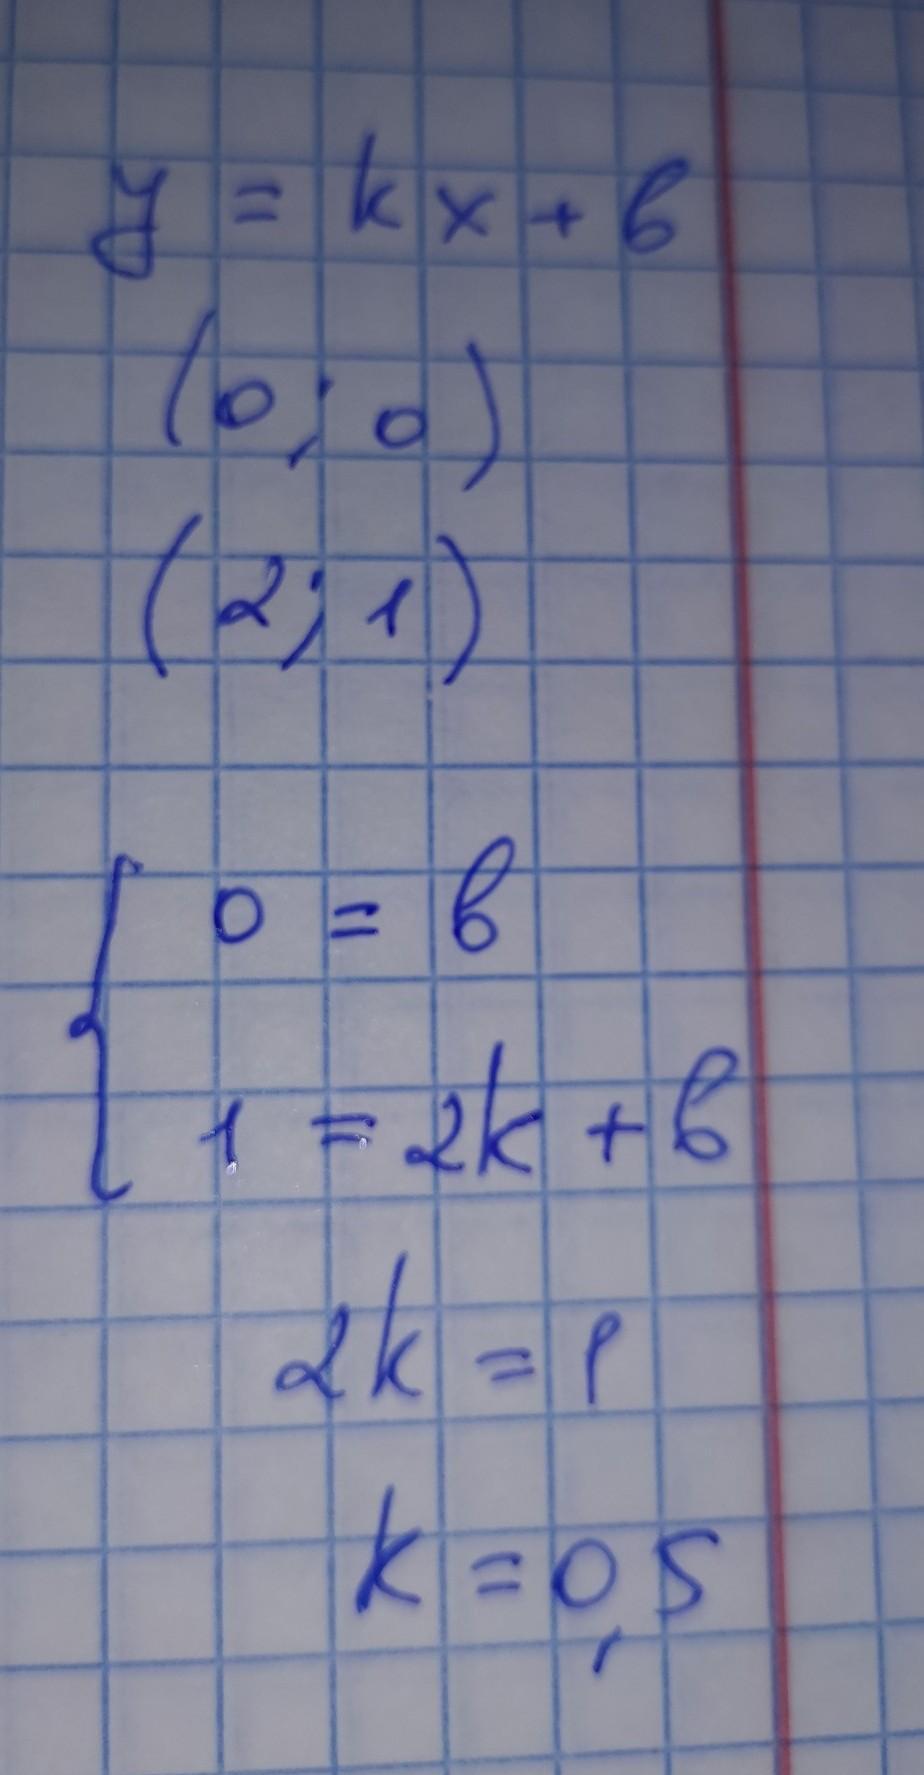 y = kx + b
(0; 0)
(2; 1)
0 = b
1 = 2k + b
2k = 1
k = 0,5